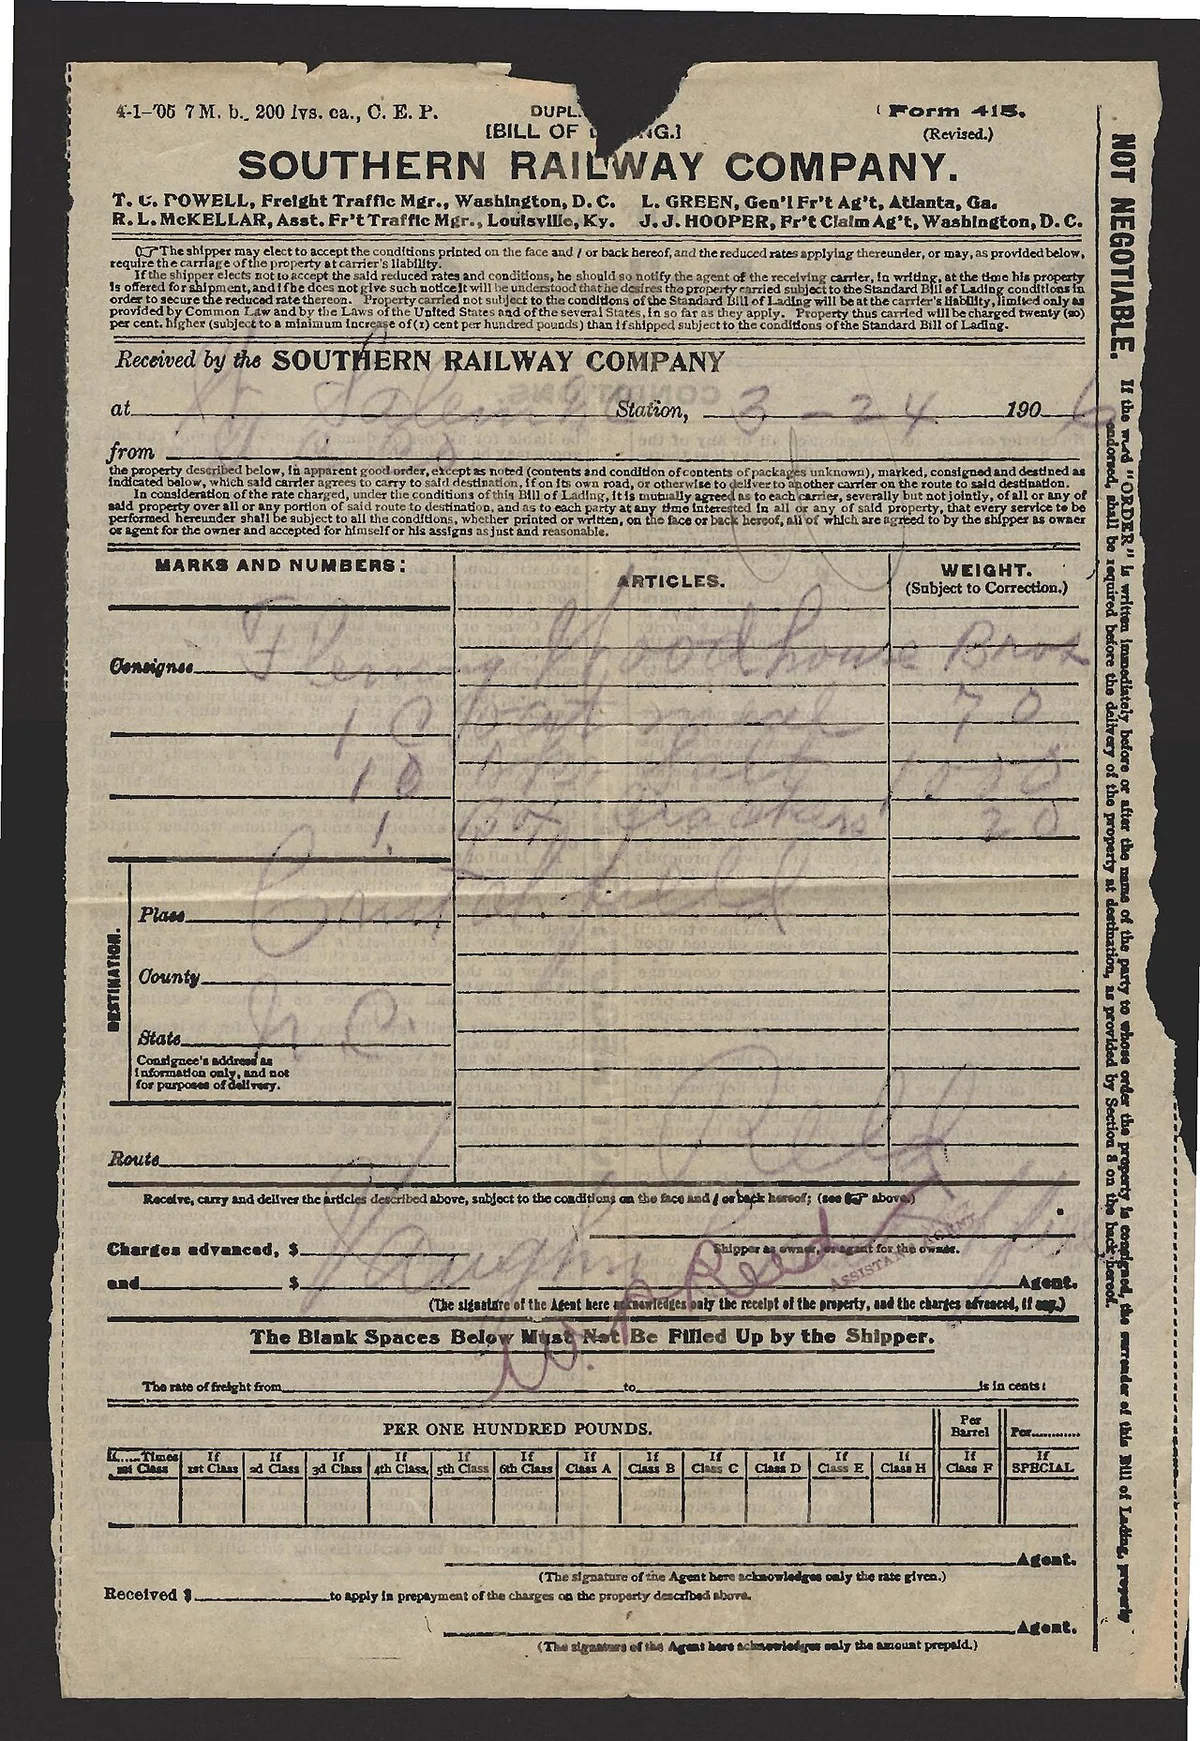 4-1-'05 7 M. b. 200 lvs. ca., C. E. P.
DUPL
Form 415.
[BILL OF L NG.]
(Revised.)
SOUTHERN RAILWAY COMPANY.
T. C. POWELL, Freight Traffic Mgr., Washington, D. C. L. GREEN, Gen'l Fr't Ag't, Atlanta, Ga.
R. L. McKELLAR, Asst. Fr't Traffic Mgr., Louisville, Ky. J. J. HOOPER, Fr't Claim Ag't, Washington, D. C.
☞ The shipper may elect to accept the conditions printed on the face and / or back hereof, and the reduced rates applying thereunder, or may, as provided below,
require the carriage of the property at carrier's liability.
If the shipper elects not to accept the said reduced rates and conditions, he should so notify the agent of the receiving carrier, in writing, at the time his property
is offered for shipment, and if he does not give such notice it will be understood that he desires the property carried subject to the Standard Bill of Lading conditions in
order to secure the reduced rate thereon. Property carried not subject to the conditions of the Standard Bill of Lading will be at the carrier's liability, limited only as
provided by Common Law and by the Laws of the United States and of the several States, in so far as they apply. Property thus carried will be charged twenty (20)
per cent. higher (subject to a minimum increase of (1) cent per hundred pounds) than if shipped subject to the conditions of the Standard Bill of Lading.
Received by the SOUTHERN RAILWAY COMPANY
at Salem N C Station, 3 - 24 190 6
from
the property described below, in apparent good order, except as noted (contents and condition of contents of packages unknown), marked, consigned and destined as
indicated below, which said carrier agrees to carry to said destination, if on its own road, or otherwise to deliver to another carrier on the route to said destination.
In consideration of the rate charged, under the conditions of this Bill of Lading, it is mutually agreed as to each carrier, severally but not jointly, of all or any of
said property over all or any portion of said route to destination, and as to each party at any time interested in all or any of said property, that every service to be
performed hereunder shall be subject to all the conditions, whether printed or written, on the face or back hereof, all of which are agreed to by the shipper as owner
or agent for the owner and accepted for himself or his assigns as just and reasonable.
MARKS AND NUMBERS: ARTICLES. WEIGHT.
(Subject to Correction.)
Consignee Woodhouse Bros
meal 70
10 Salt
1 Box Crackers 20
DESTINATION.
Place
County
State N C
Consignee's address as
information only, and not
for purposes of delivery.
Route
Receive, carry and deliver the articles described above, subject to the conditions on the face and / or back hereof; (see ☞ above.)
Vaughn
Charges advanced, $
Shipper as owner, or agent for the owner.
W. P. Reid
ASSISTANT AGENT
and $ Agent.
(The signature of the Agent here acknowledges only the receipt of the property, and the charges advanced, if any.)
The Blank Spaces Below Must Not Be Filled Up by the Shipper.
The rate of freight from to is in cents:
PER ONE HUNDRED POUNDS. Per Barrel Per
If Times 1st Class If 1st Class If 2d Class If 3d Class If 4th Class If 5th Class If 6th Class If Class A If Class B If Class C If Class D If Class E If Class H If Class F If SPECIAL
Agent.
(The signature of the Agent here acknowledges only the rate given.)
Received $ to apply in prepayment of the charges on the property described above.
Agent.
(The signature of the Agent here acknowledges only the amount prepaid.)
NOT NEGOTIABLE. If the word "ORDER" is written immediately before or after the name of the party to whose order the property is consigned, the surrender of this Bill of Lading, properly
endorsed, shall be required before the delivery of the property at destination, as provided by Section 8 on the back hereof.